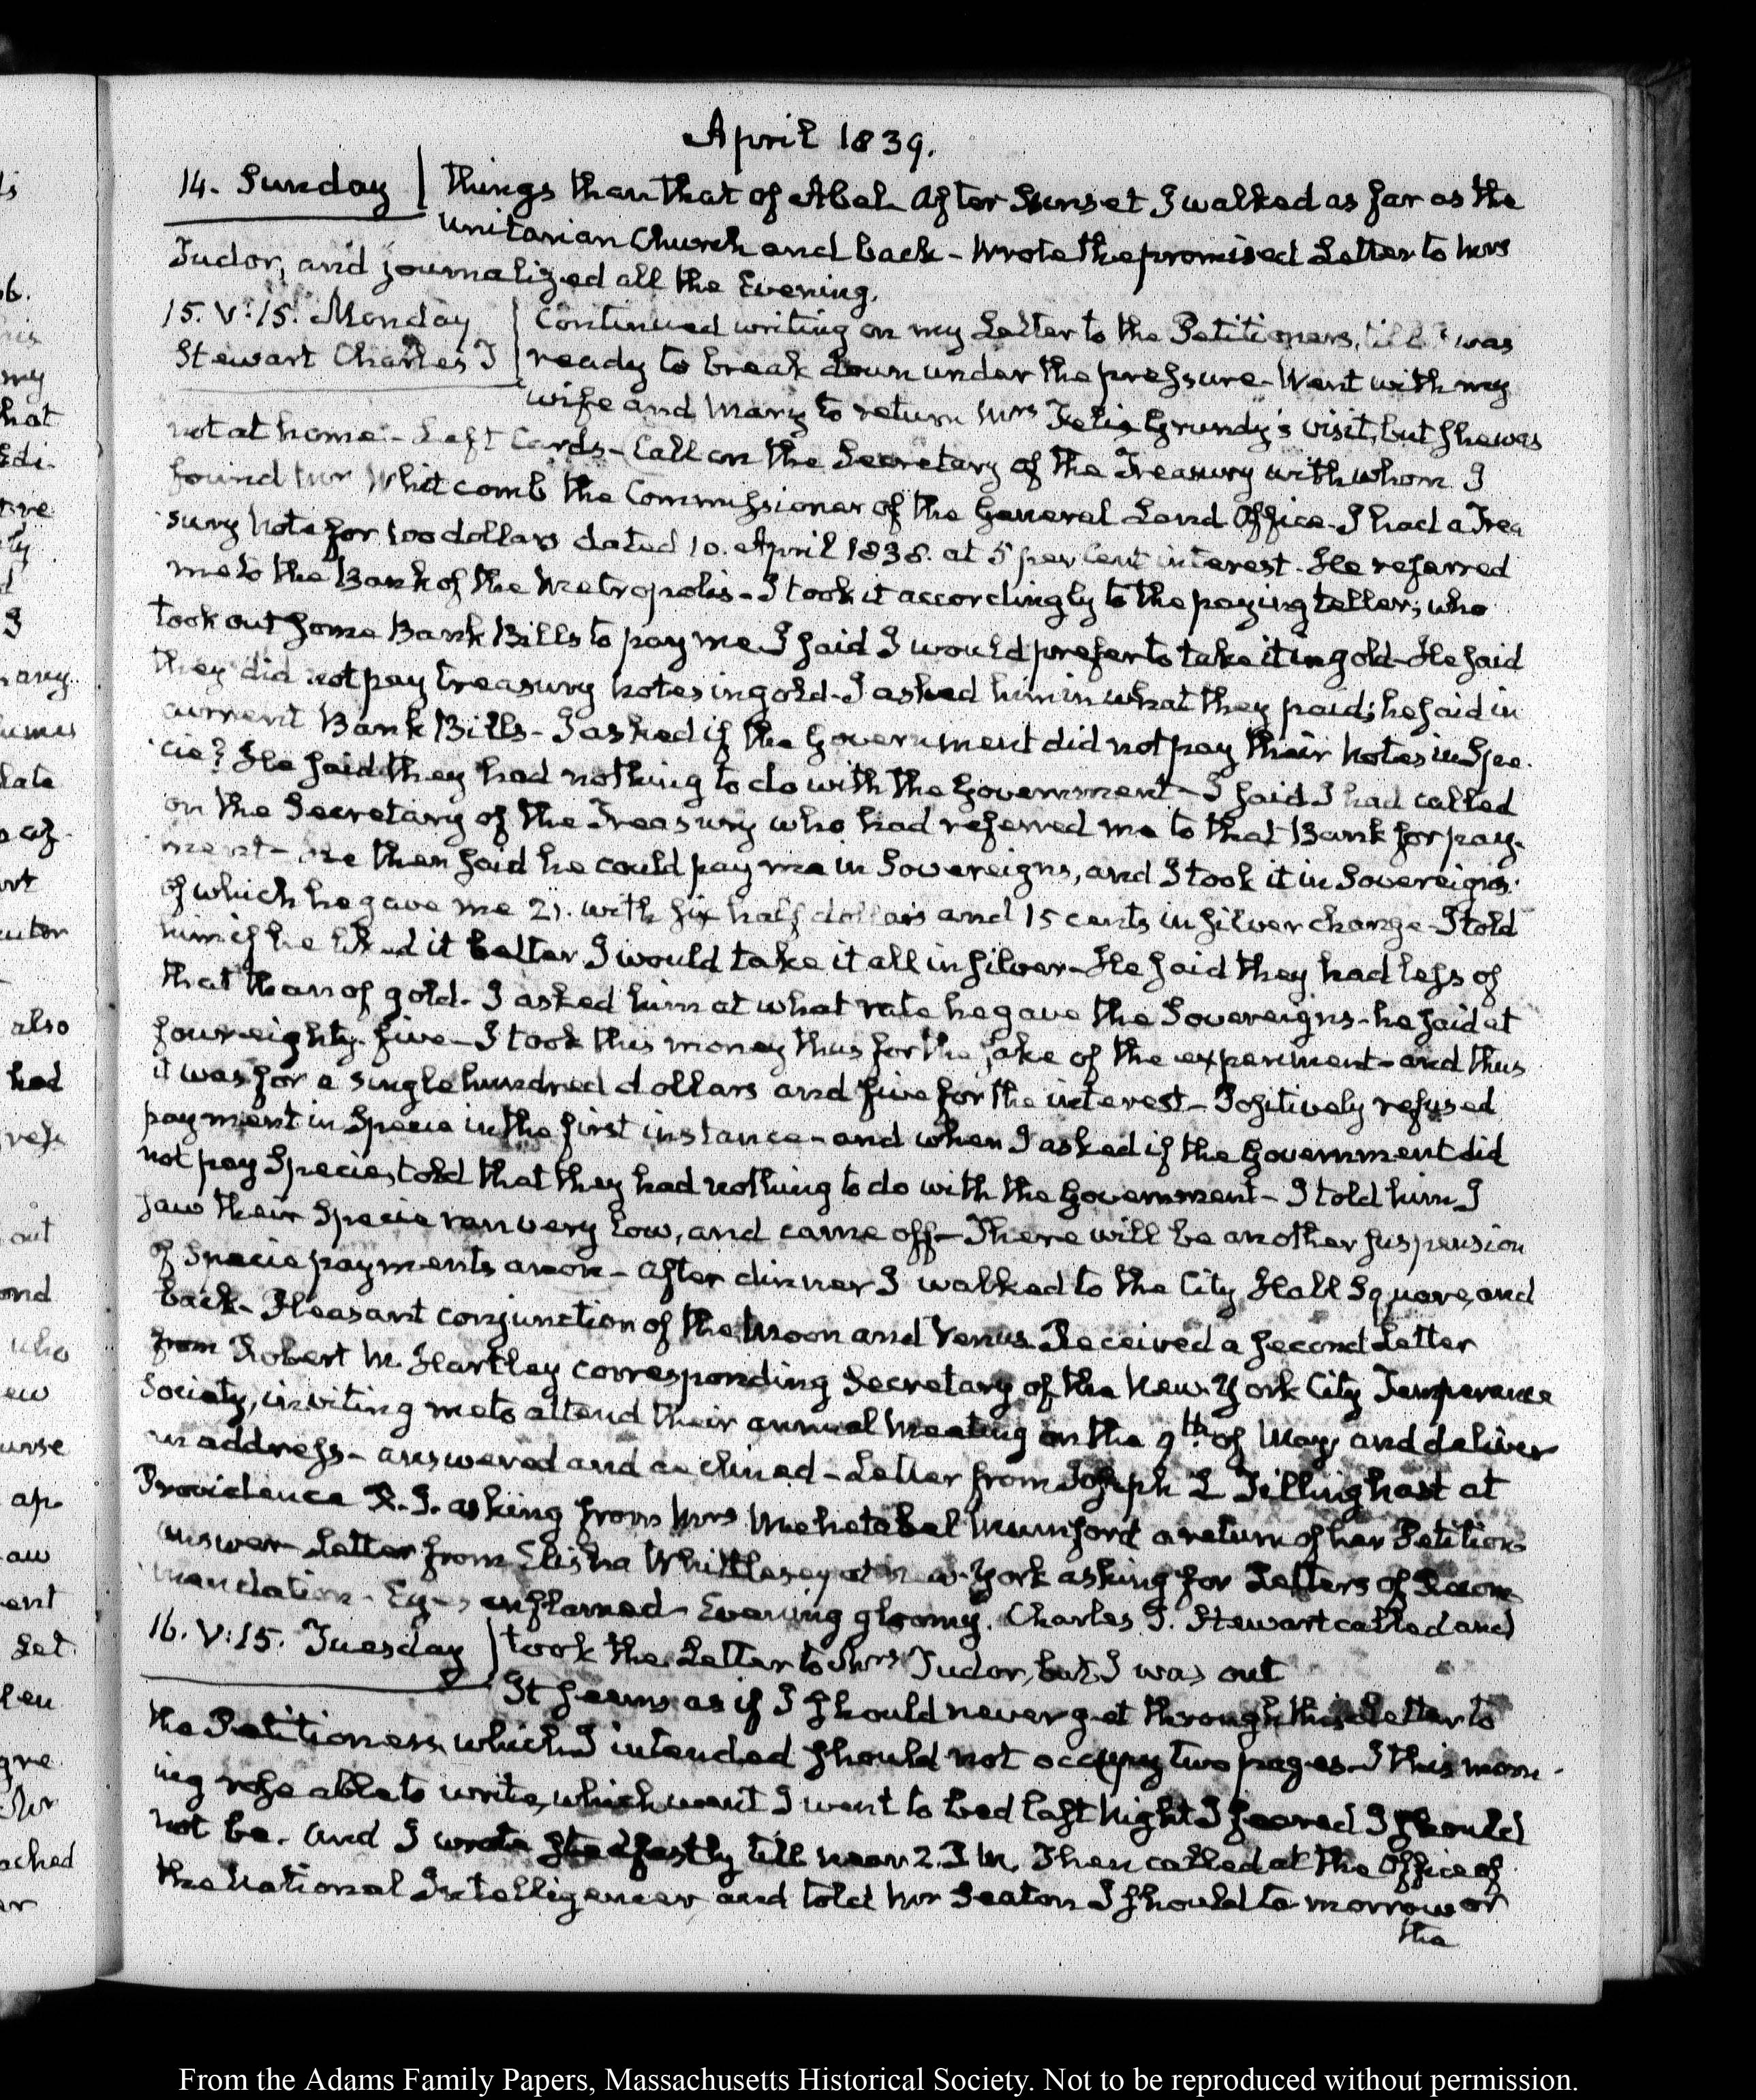 April 1839.
14. Sunday things than that of Abel. After Sunset I walked as far as the
Unitarian Church and back - Wrote the promised Letter to Mrs
Tudor, and journalized all the Evening.
15. V:15. Monday Continued writing on my Letter to the Petitioners, till I was
Stewart Charles T ready to break down under the pressure - Went with my
wife and Mary to return Mrs Felix Grundy's visit, but she was
not at home - Left Cards - Call on the Secretary of the Treasury with whom I
found Mr Whitcomb the Commissioner of the General Land Office - I had a Trea
sury Note for 100 dollars dated 10. April 1838. at 5 per Cent interest. He referred
me to the Bank of the Metropolis - I took it accordingly to the paying teller; who
took out some Bank Bills to pay me. I said I would prefer to take it in gold - He said
they did not pay treasury notes in gold - I asked him in what they paid; he said in
current Bank Bills - I asked if the Government did not pay their notes in Spe-
cie? He said they had nothing to do with the Government - I said I had called
on the Secretary of the Treasury who had referred me to that Bank for pay-
ment - He then said he could pay me in Sovereigns, and I took it in Sovereigns;
of which he gave me 21. with six half dollars and 15 cents in silver change - I told
him if he liked it better I would take it all in silver - He said they had less of
that than of gold. I asked him at what rate he gave the Sovereigns - he said at
four eighty-five - I took this money thus for the sake of the experiment - and thus
it was for a single hundred dollars and five for the interest - Positively refused
payment in Specie in the first instance - and when I asked if the Government did
not pay Specie, told that they had nothing to do with the Government - I told him I
saw their Specie ran very low, and came off - There will be another suspension
of Specie payments anon - After dinner I walked to the City Hall Square, and
back - Pleasant conjunction of the Moon and Venus. Received a second Letter
from Robert M. Hartley corresponding Secretary of the New-York City Temperance
Society, inviting me to attend their annual Meeting on the 9th. of May, and deliver
an address - answered and declined - Letter from Joseph L Tillinghast at
Providence R.I. asking from Mrs Mehetabel Mumford a return of her Petition -
answer - Letter from Elisha Whittlesey at New-York asking for Letters of Recom-
mendation - Eyes enflamed - Evening gloomy. Charles T. Stewart called and
16. V:15. Tuesday took the Letter to Mrs Tudor, but I was out
It seems as if I should never get through this Letter to
the Petitioners, which I intended should not occupy two pages - I this morn-
ing rose able to write, which when I went to bed last Night I feared I should
not be. And I wrote stedfastly till near 2. P.M. Then called at the Office of
the National Intelligencer and told Mr Seaton I should to-morrow or
the
From the Adams Family Papers, Massachusetts Historical Society. Not to be reproduced without permission.